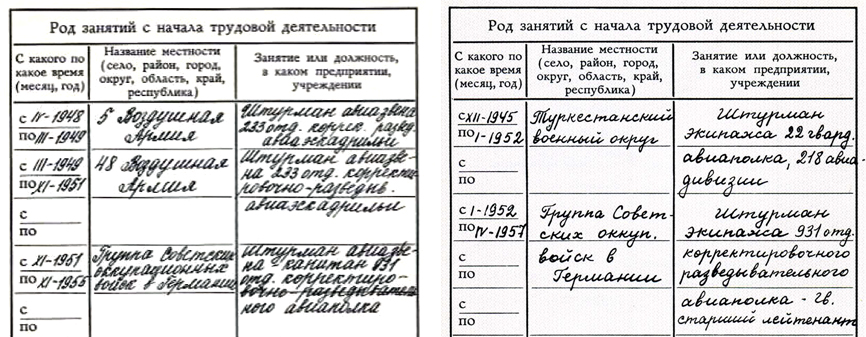 Род занятий с начала трудовой деятельности
С какого по
какое время
(месяц, год)
Название местности
(село, район, город,
округ, область, край,
республика)
Занятие или должность,
в каком предприятии,
учреждении
с IV-1948
по III-1949
5 Воздушная
Армия
Штурман авиазвена
233 отд. коррек. развед.
авиаэскадрильи
с III-1949
по XI-1951
48 Воздушная
Армия
Штурман авиазве-
на 233 отд. корректи-
ровочно-разведыв.
авиаэскадрильи
с
по
с XI-1951
по XI-1955
Группа Советских
оккупационных
войск в Германии
Штурман авиазве-
на капитан 931
отд. корректиро-
вочно-разведыватель
ного авиаполка
с
по
Род занятий с начала трудовой деятельности
С какого по
какое время
(месяц, год)
Название местности
(село, район, город,
округ, область, край,
республика)
Занятие или должность,
в каком предприятии,
учреждении
с XII-1945
по I-1952
Туркестанский
военный округ
Штурман
экипажа 22 гвард.
авиаполка, 218 авиа-
дивизии
с
по
с I-1952
по IV-1957
Группа Совет-
ских оккуп.
войск в
Германии
Штурман
экипажа 931 отд.
корректировочного
разведывательного
авиаполка - гв.
старший лейтенант
с
по
с
по